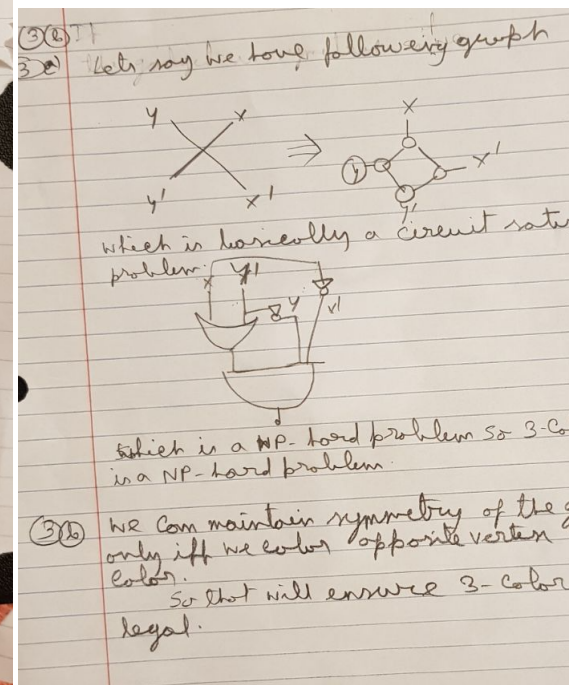 3b If
3a Lets say we have following graph
y x ⇒ x
y x'
y' x' y'
which is basically a circuit satis
problem.
x y' y x'
which is a NP-hard problem so 3-Co
is a NP-hard problem.
3b We can maintain symmetry of the g
only iff we color opposite vertex
color.
So that will ensure 3-color
legal.